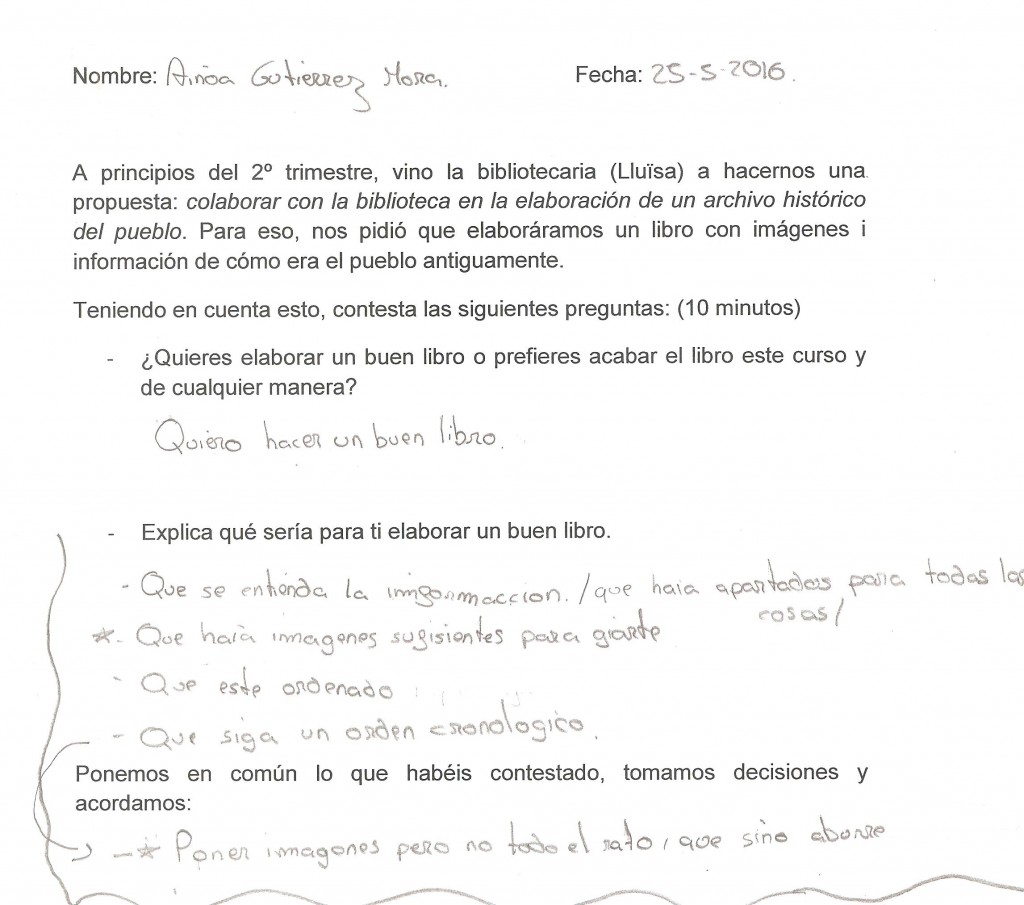 Nombre: Ainoa Gutierrez Mora. Fecha: 25-5-2016.
A principios del 2º trimestre, vino la bibliotecaria (Lluïsa) a hacernos una
propuesta: colaborar con la biblioteca en la elaboración de un archivo histórico
del pueblo. Para eso, nos pidió que elaboráramos un libro con imágenes i
información de cómo era el pueblo antiguamente.
Teniendo en cuenta esto, contesta las siguientes preguntas: (10 minutos)
- ¿Quieres elaborar un buen libro o prefieres acabar el libro este curso y
de cualquier manera?
Quiero hacer un buen libro.
- Explica qué sería para ti elaborar un buen libro.
- Que se entienda la imformaccion. / que haia apartados para todas las
cosas/
*- Que haia imagenes sufisientes para giarte
- Que este ordenado
- Que siga un orden cronologico.
Ponemos en común lo que habéis contestado, tomamos decisiones y
acordamos:
-* Poner imagenes pero no todo el rato, que sino aburre